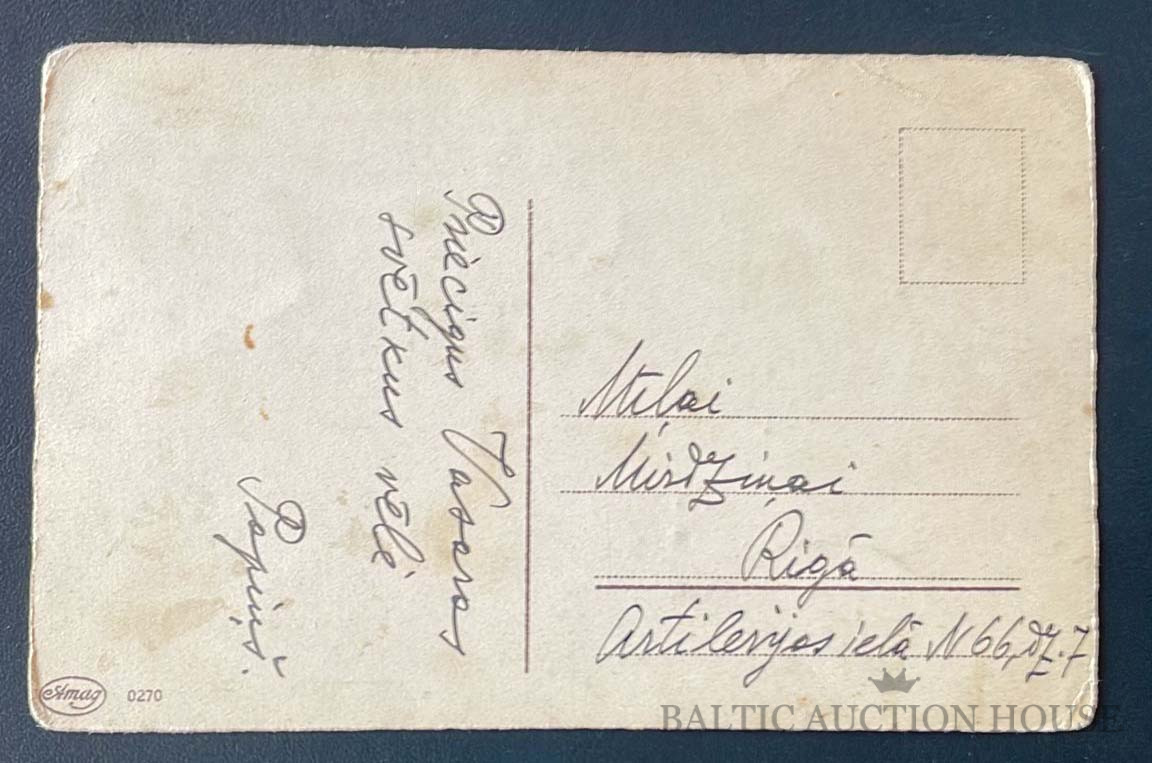 Priecīgus Vasaras
svētkus vēlē
Papiņš.
Mīļai
Mirdziņai
Rīgā
Artilerijas ielā N 66, dz. 7
Amag 0270
BALTIC AUCTION HOUSE